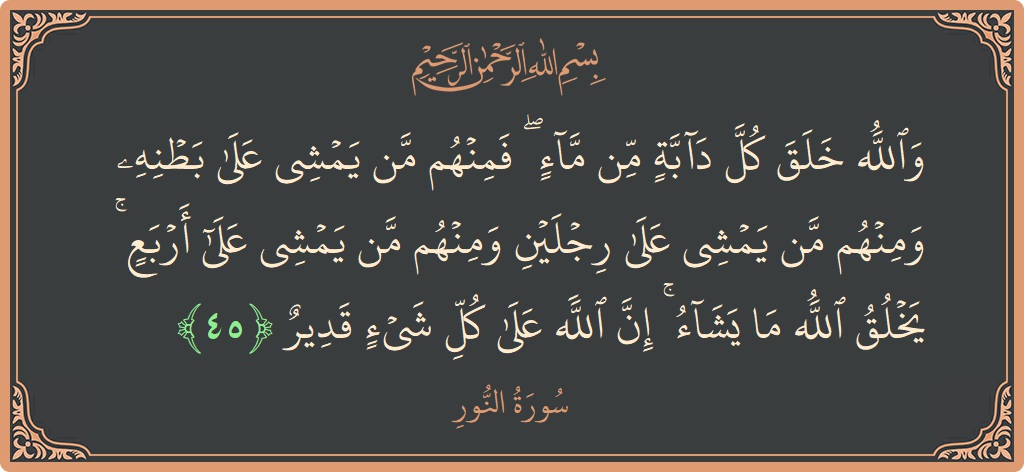 بِسْمِ اللهِ الرَّحْمٰنِ الرَّحِيْمِ
وَٱللَّهُ خَلَقَ كُلَّ دَآبَّةٍ مِّن مَّآءٍ ۖ فَمِنْهُم مَّن يَمْشِى عَلَىٰ بَطْنِهِۦ
وَمِنْهُم مَّن يَمْشِى عَلَىٰ رِجْلَيْنِ وَمِنْهُم مَّن يَمْشِى عَلَىٰٓ أَرْبَعٍ ۚ
يَخْلُقُ ٱللَّهُ مَا يَشَآءُ ۚ إِنَّ ٱللَّهَ عَلَىٰ كُلِّ شَىْءٍ قَدِيرٌ ﴿٤٥﴾
سُورَةُ النُّورِ